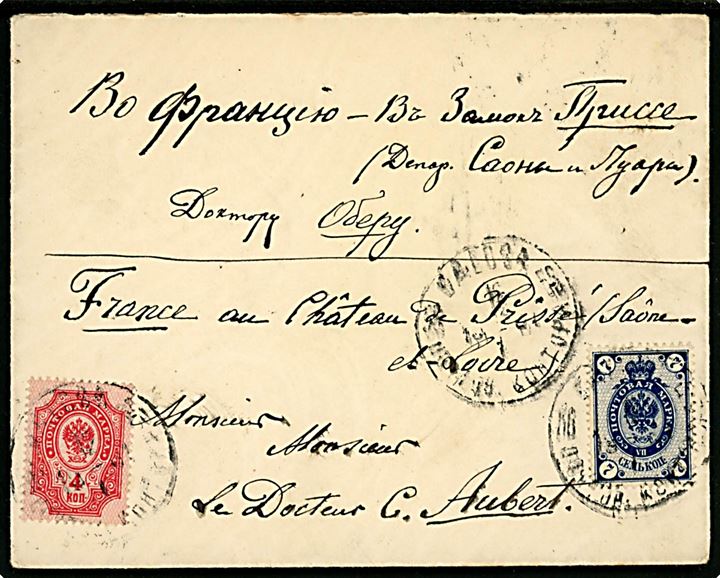 Во Францію – Въ Замокъ Приссе
(Депар. Саоны и Луары).
Доктору Оберу.
France au Château de Prissé (Saône-
et-Loire
Monsieur
Monsieur
Le Docteur C. Aubert.
ПОЧТОВАЯ МАРКА
4
КОП.
7 7
ПОЧТОВАЯ МАРКА
VII
СЕМЬ КОП.
7 7